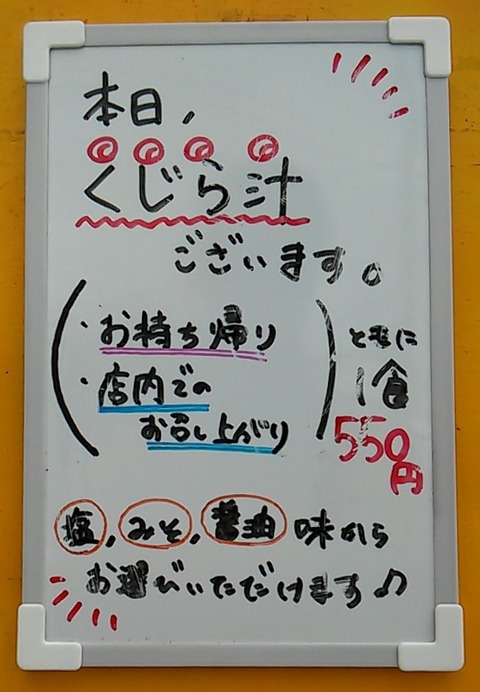 本日,
くじら汁
ございます。
(・お持ち帰り
・店内での
お召し上がり)
共に
1食
550
円
塩,みそ,醤油味から
お選びいただけます♪